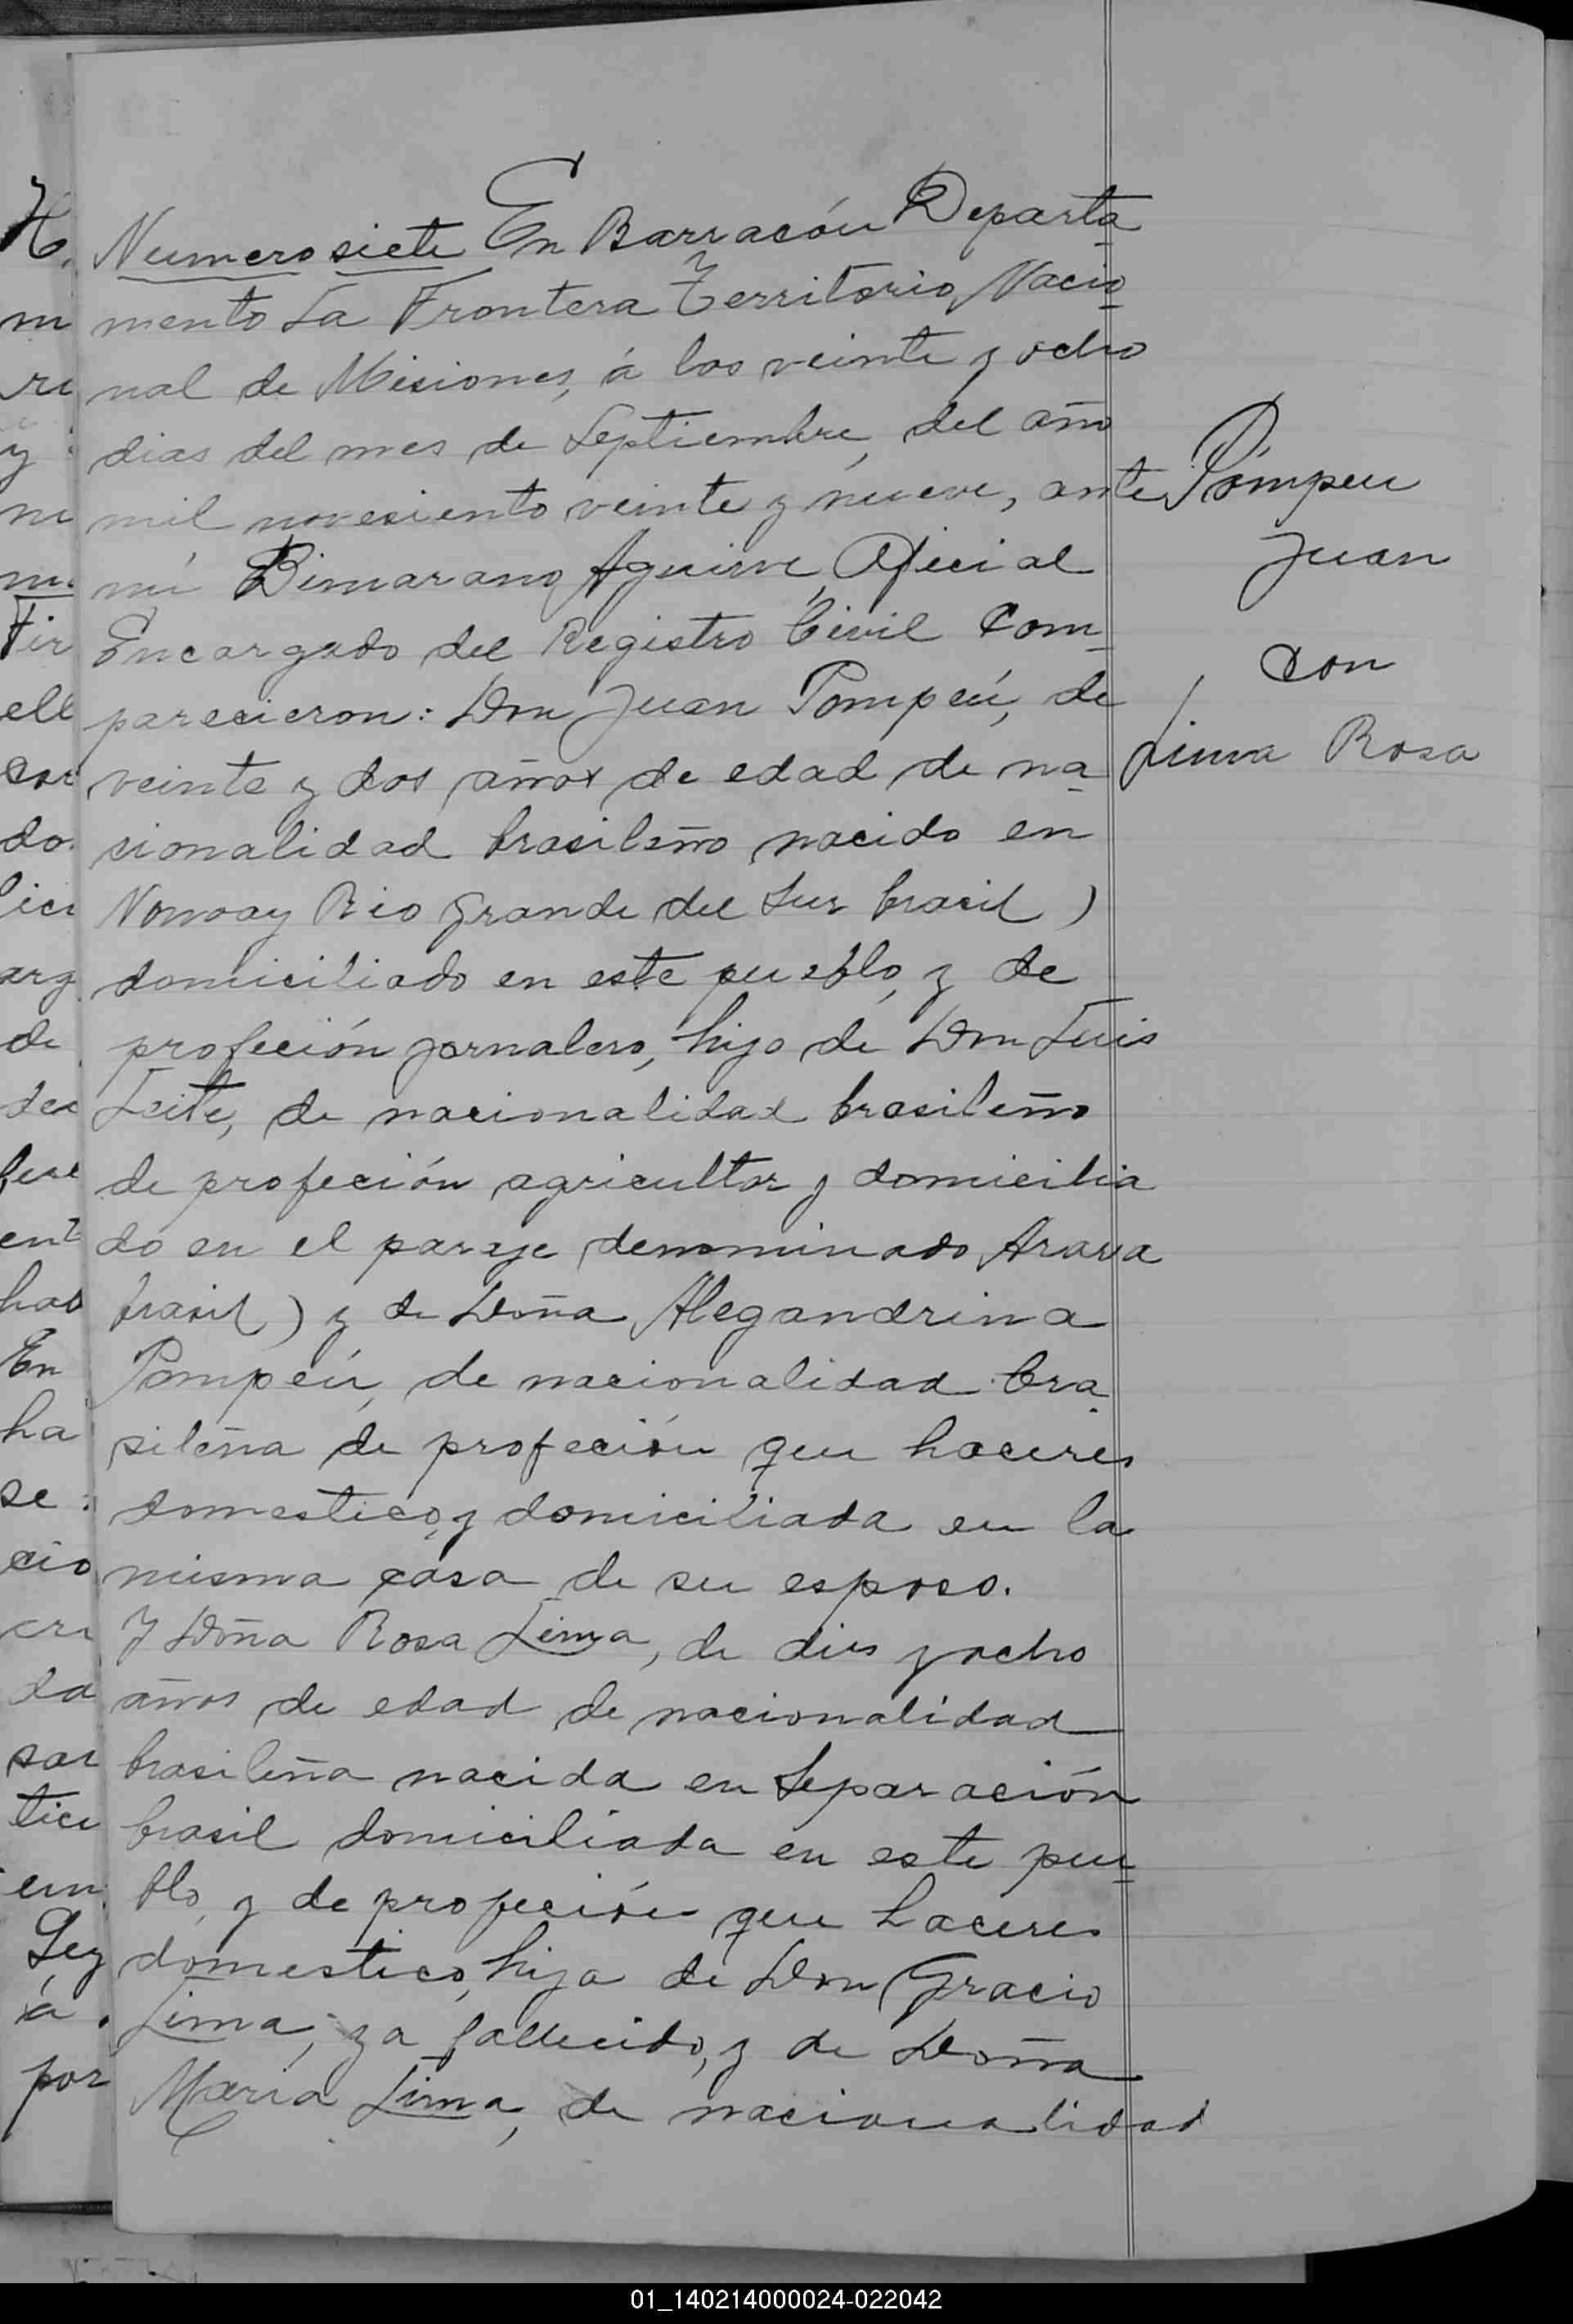 Numero siete En Barracón Departa
mento La Frontera Territorio Nacio
nal de Misiones, á los veinte y ocho
dias del mes de Septiembre, del año
mil novesiento veinte y nueve, ante
mi Bimarano Aguirre, Oficial
Encargado del Registro Civil Com
parecieron: Don Juan Pompeú, de
veinte y dos años de edad de na
cionalidad brasileño nacido en
Nonoay Rio Grande del Sur brasil)
domiciliado en este pueblo, y de
profeción jornalero, hijo de Don Luis
Leite, de nacionalidad brasileño
de profeción agricultor y domicilia
do en el paraje denominado Arara
brasil) y de Doña Alegandrina
Pompeú, de nacionalidad bra
sileña de profeción que haceres
domestico, y domiciliada en la
misma casa de su esposo.
Y Doña Rosa Lima, de dies y ocho
años de edad de nacionalidad
brasileña nacida en Separación
brasil domiciliada en este pue
blo, y de profeción que haceres
domestico, hija de Don Gracio
Lima, ya fallecido, y de Doña
María Lima, de nacionalidad
Pómpeu
Juan
con
Lima Rosa
01_140214000024-022042